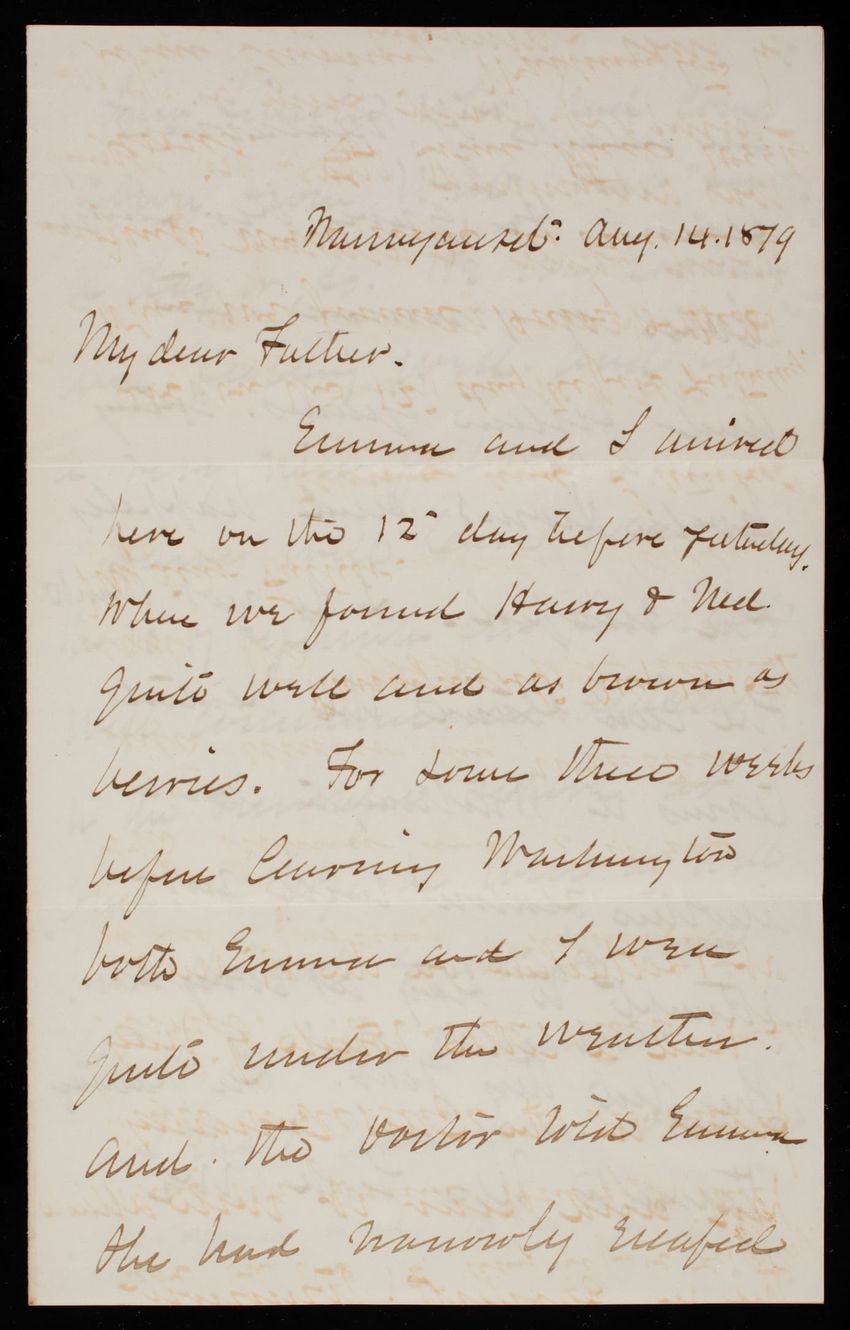 Narragansett. Aug. 14. 1879
My dear Father.
Emma and I arrived
here on the 12" day before yesterday.
Where we found Harry & Ned.
quite well and as brown as
berries. For some three weeks
before leaving Washington
both Emma and I were
quite under the weather.
And. the Doctor told Emma
she had narrowly escaped